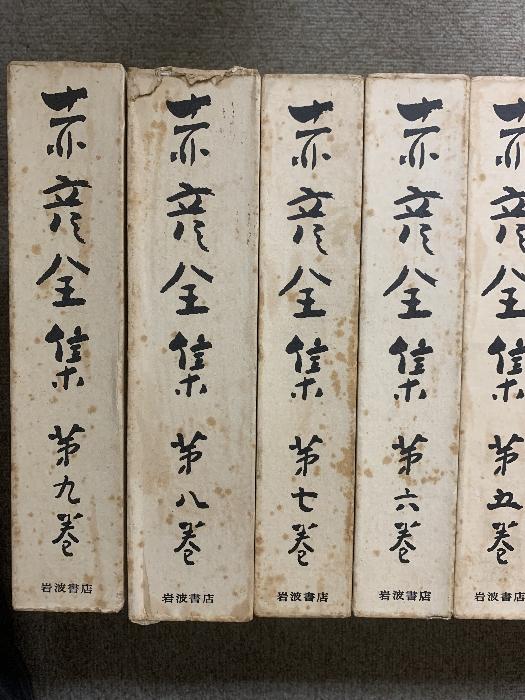 赤彦全集 第九巻
岩波書店
赤彦全集 第八巻
岩波書店
赤彦全集 第七巻
岩波書店
赤彦全集 第六巻
岩波書店
赤彦全集 第五巻
岩波書店